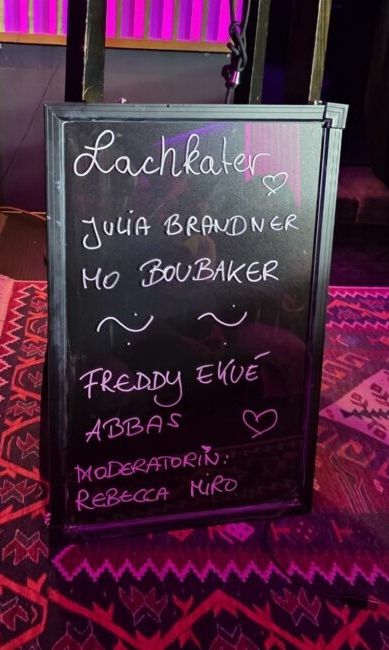 Lachkater
JULIA BRANDNER
MO BOUBAKER
FREDDY EKUÉ
ABBAS
MODERATORIN:
REBECCA MIRO